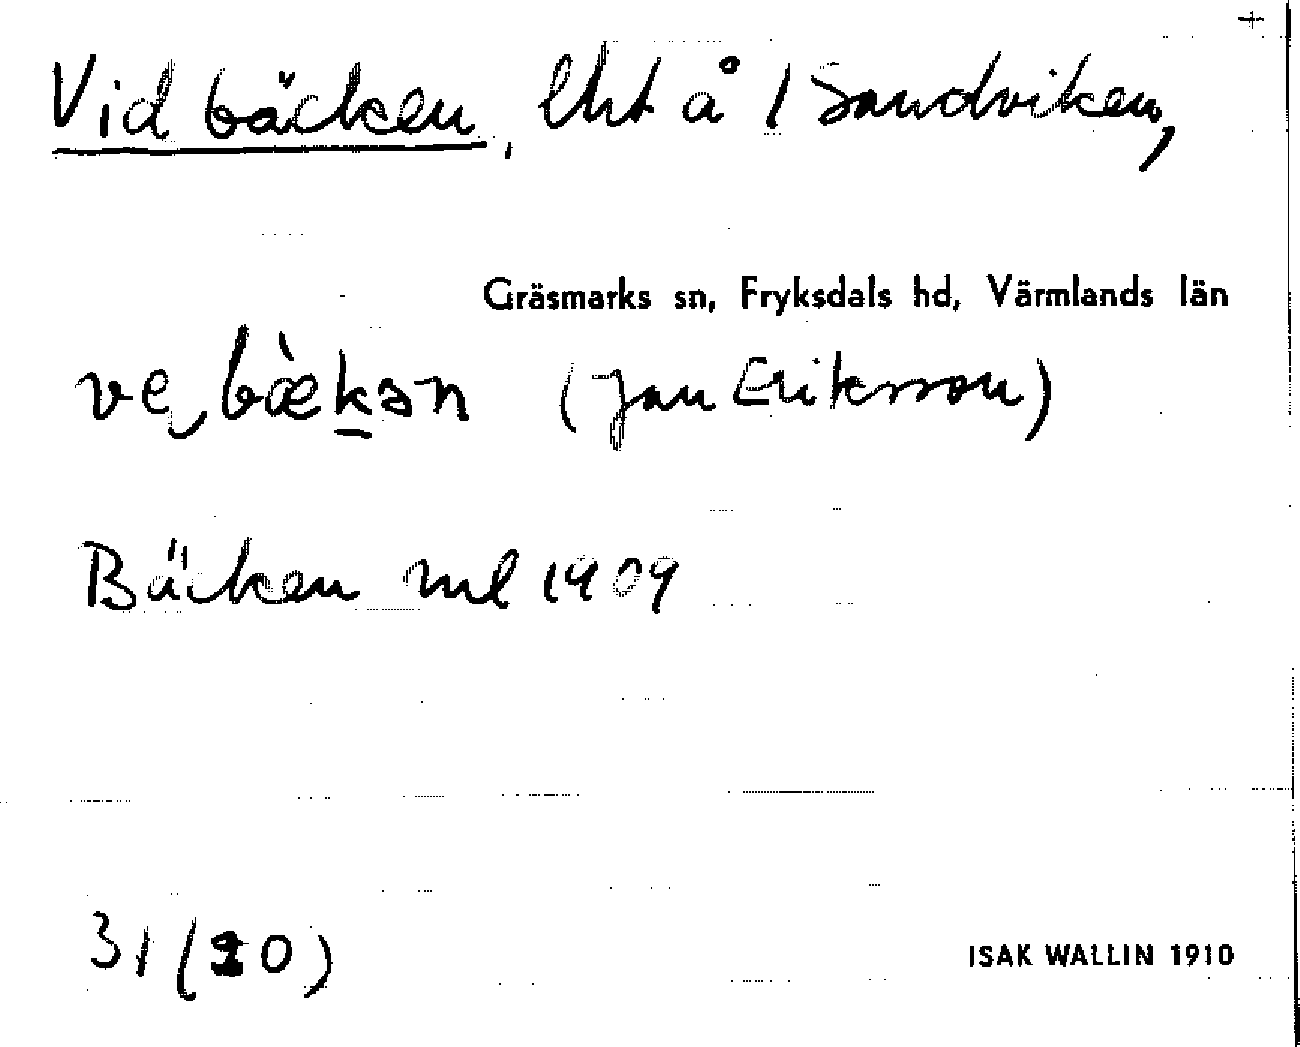 Vid bäcken, lht å 1 Sandviken,
Gräsmarks sn, Fryksdals hd, Värmlands län
ve bæ̀kən (Jan Eriksson)
Bäcken ml 1909
31 (20)
ISAK WALLIN 1910